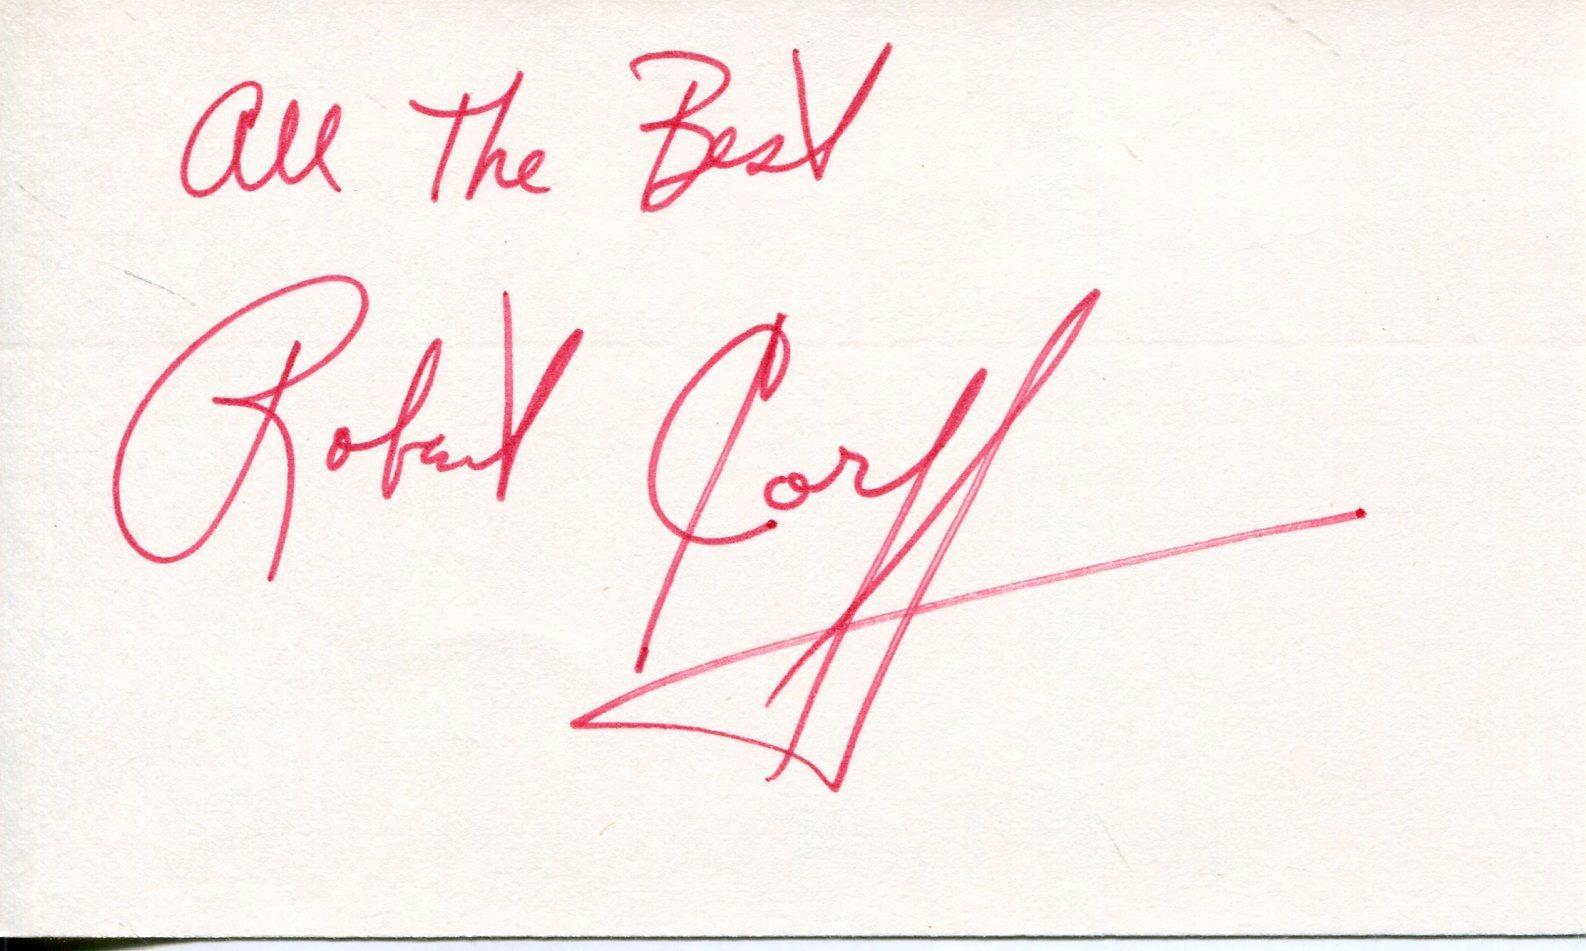 All The Best
Robert Corff